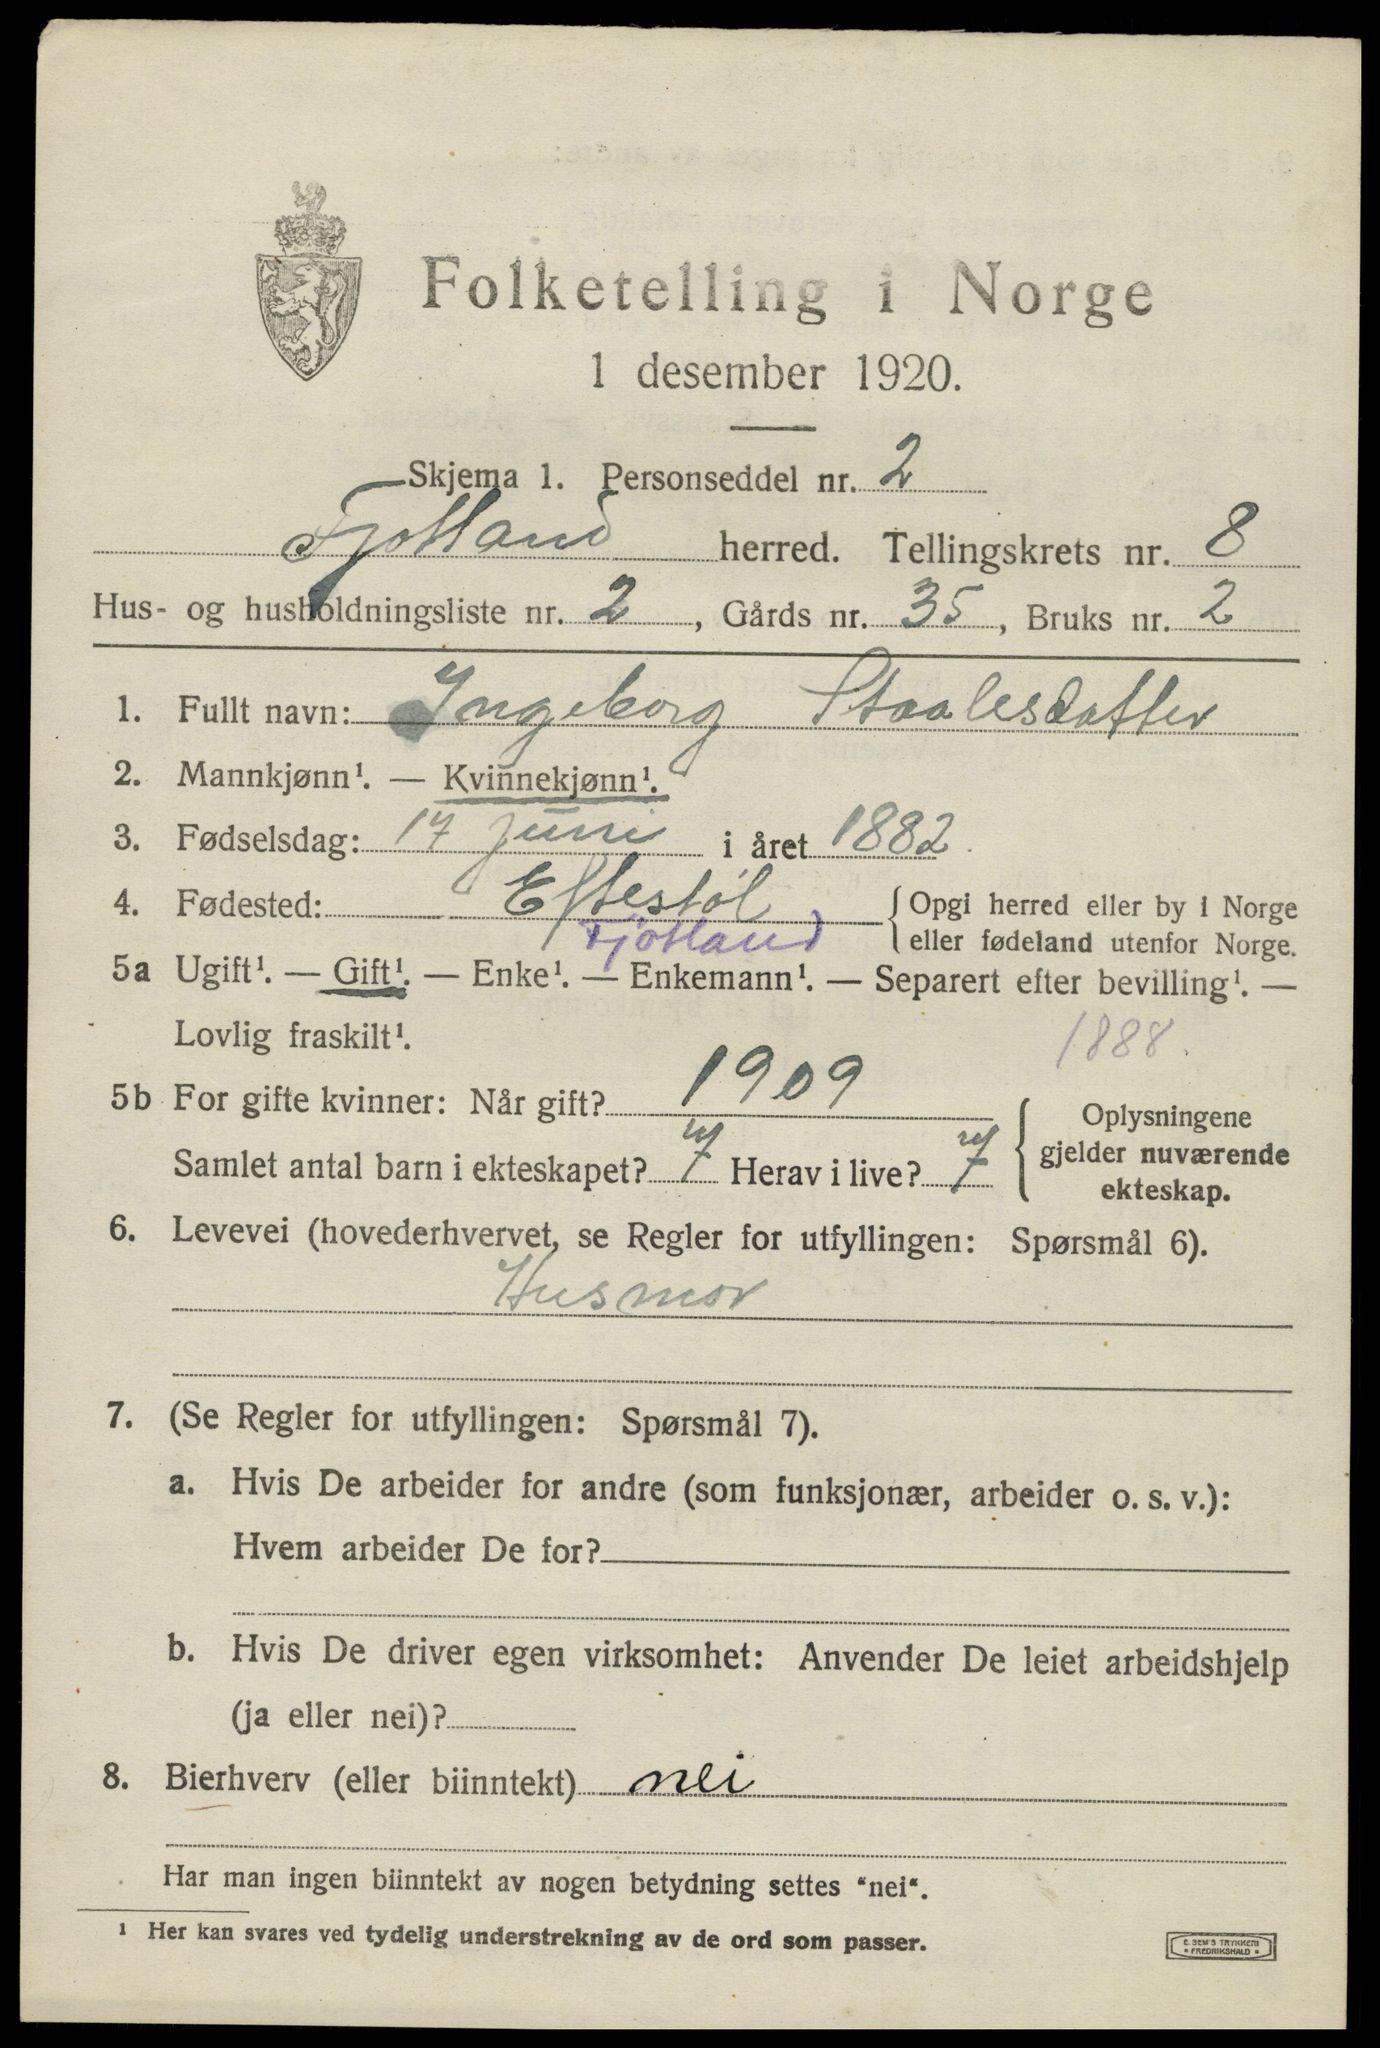 Folketelling i Norge
1 desember 1920.
Skjema 1. Personseddel nr. 2
Fjotland herred. Tellingskrets nr. 8
Hus- og husholdningsliste nr. 2, Gårds nr. 35, Bruks nr. 2
1. Fullt navn: Ingeborg Staalesdatter
2. Mannkjønn¹. — Kvinnekjønn¹.
3. Fødselsdag: 17 juni i året 1882
4. Fødested: Eftestøl { Opgi herred eller by i Norge
Fjotland eller fødeland utenfor Norge.
5a Ugift¹. — Gift¹. — Enke¹. — Enkemann¹. — Separert efter bevilling¹. —
Lovlig fraskilt¹. 1888.
5b For gifte kvinner: Når gift? 1909 { Oplysningene
Samlet antal barn i ekteskapet? 7 Herav i live? 7 gjelder nuværende
ekteskap.
6. Levevei (hovederhvervet, se Regler for utfyllingen: Spørsmål 6).
Husmor
7. (Se Regler for utfyllingen: Spørsmål 7).
a. Hvis De arbeider for andre (som funksjonær, arbeider o. s. v.):
Hvem arbeider De for?
b. Hvis De driver egen virksomhet: Anvender De leiet arbeidshjelp
(ja eller nei)?
8. Bierhverv (eller biinntekt) nei
Har man ingen biinntekt av nogen betydning settes "nei".
¹ Her kan svares ved tydelig understrekning av de ord som passer.
E. SEM'S TRYKKERI
* FREDRIKSHALD *